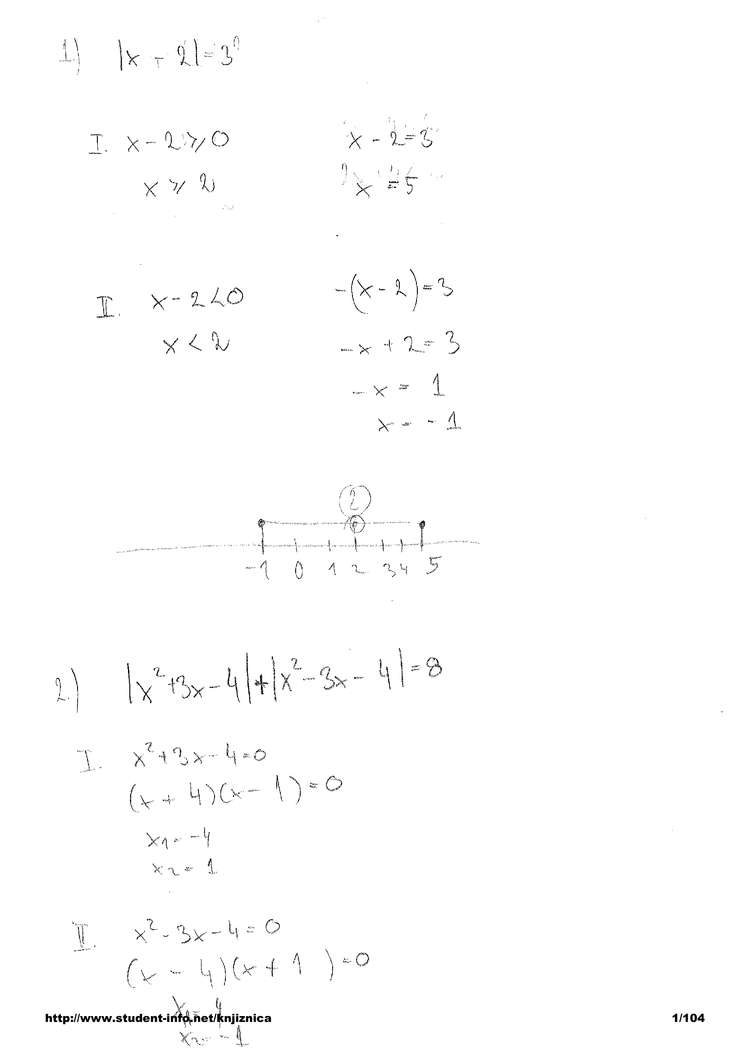 1.) |x - 2| = 3
I. x - 2 ≥ 0 x - 2 = 3
x ≥ 2 x = 5
II. x - 2 < 0 -(x - 2) = 3
x < 2 -x + 2 = 3
-x = 1
x = -1
2
-1 0 1 2 3 4 5
2.) |x² + 3x - 4| + |x² - 3x - 4| = 8
I. x² + 3x - 4 = 0
(x + 4)(x - 1) = 0
x₁ = -4
x₂ = 1
II. x² - 3x - 4 = 0
(x - 4)(x + 1) = 0
x₁ = 4
http://www.student-info.net/knjiznica 1/104
x₂ = -1